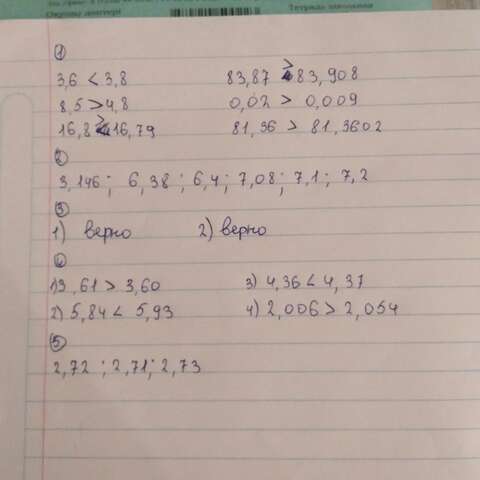 Оқушы дәптері Тетрадь школьная
1
3,6 < 3,8 83,87 > 83,908
8,5 > 4,8 0,02 > 0,009
16,8 > 16,79 81,36 > 81,3602
2
3,146; 6,38; 6,4; 7,08; 7,1; 7,2
3
1) верно 2) верно
4
1) 3,61 > 3,60 3) 4,36 < 4,37
2) 5,84 < 5,93 4) 2,006 > 2,054
5
2,72; 2,71; 2,73